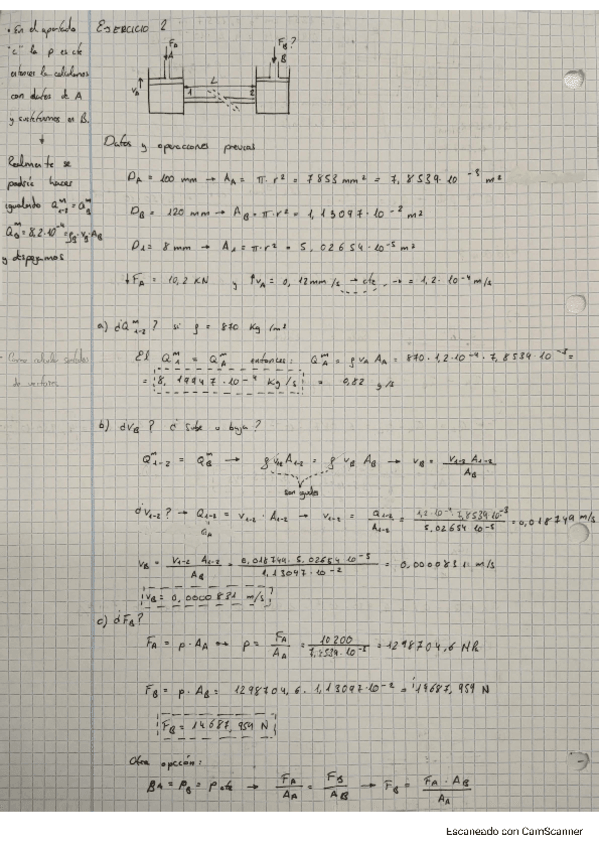 • En el apartado
"c" la p es cte
entonces la calculamos
con datos de A
y sustituimos en B.
Realmente se
podría hacer
igualando Qᵐ₁₋₂ = Qᵐ_B
Qᵐ_B = 8,2·10⁻⁴ = ρ_B · v_B · A_B
y despejamos
- Como calcular sentidos
de vectores
EJERCICIO 2
F_A
A
F_B?
B
v_A
L
1
2
Datos y operaciones previas
D_A = 100 mm → A_A = π · r² = 7853 mm² = 7,8539·10⁻³ m²
D_B = 120 mm → A_B = π · r² = 1,13097·10⁻² m²
D_1 = 8 mm → A_1 = π · r² = 5,02654·10⁻⁵ m²
↓F_A = 10,2 KN y ↑v_A = 0,12 mm/s → cte → = 1,2·10⁻⁴ m/s
a) ¿Qᵐ₁₋₂? si ρ = 870 Kg/m³
El Qᵐ₁₋₂ = Qᵐ_A entonces: Qᵐ_A = ρ v_A A_A = 870·1,2·10⁻⁴·7,8539·10⁻³ =
= 8,19947·10⁻⁴ Kg/s = 0,82 g/s
b) ¿v_B? ¿sube o baja?
Qᵐ₁₋₂ = Qᵐ_B → ρ v₁₋₂ A₁₋₂ = ρ v_B A_B → v_B = v₁₋₂ A₁₋₂ / A_B
son iguales
¿v₁₋₂? → Q₁₋₂ = v₁₋₂ · A₁₋₂ → v₁₋₂ = Q₁₋₂ / A₁₋₂ = 1,2·10⁻⁴ · 7,8539·10⁻³ / 5,02654·10⁻⁵ = 0,018749 m/s
Q_A
v_B = v₁₋₂ A₁₋₂ / A_B = 0,018749 · 5,02654·10⁻⁵ / 1,13097·10⁻² = 0,0000831 m/s
v_B = 0,0000831 m/s
c) ¿F_B?
F_A = p · A_A → p = F_A / A_A = 10200 / 7,8539·10⁻³ = 1298704,6
F_B = p · A_B = 1298704,6 · 1,13097·10⁻² = 14687,959 N
F_B = 14687,959 N
Otra opción:
P_A = P_B = P cte → F_A / A_A = F_B / A_B → F_B = F_A · A_B / A_A
Escaneado con CamScanner